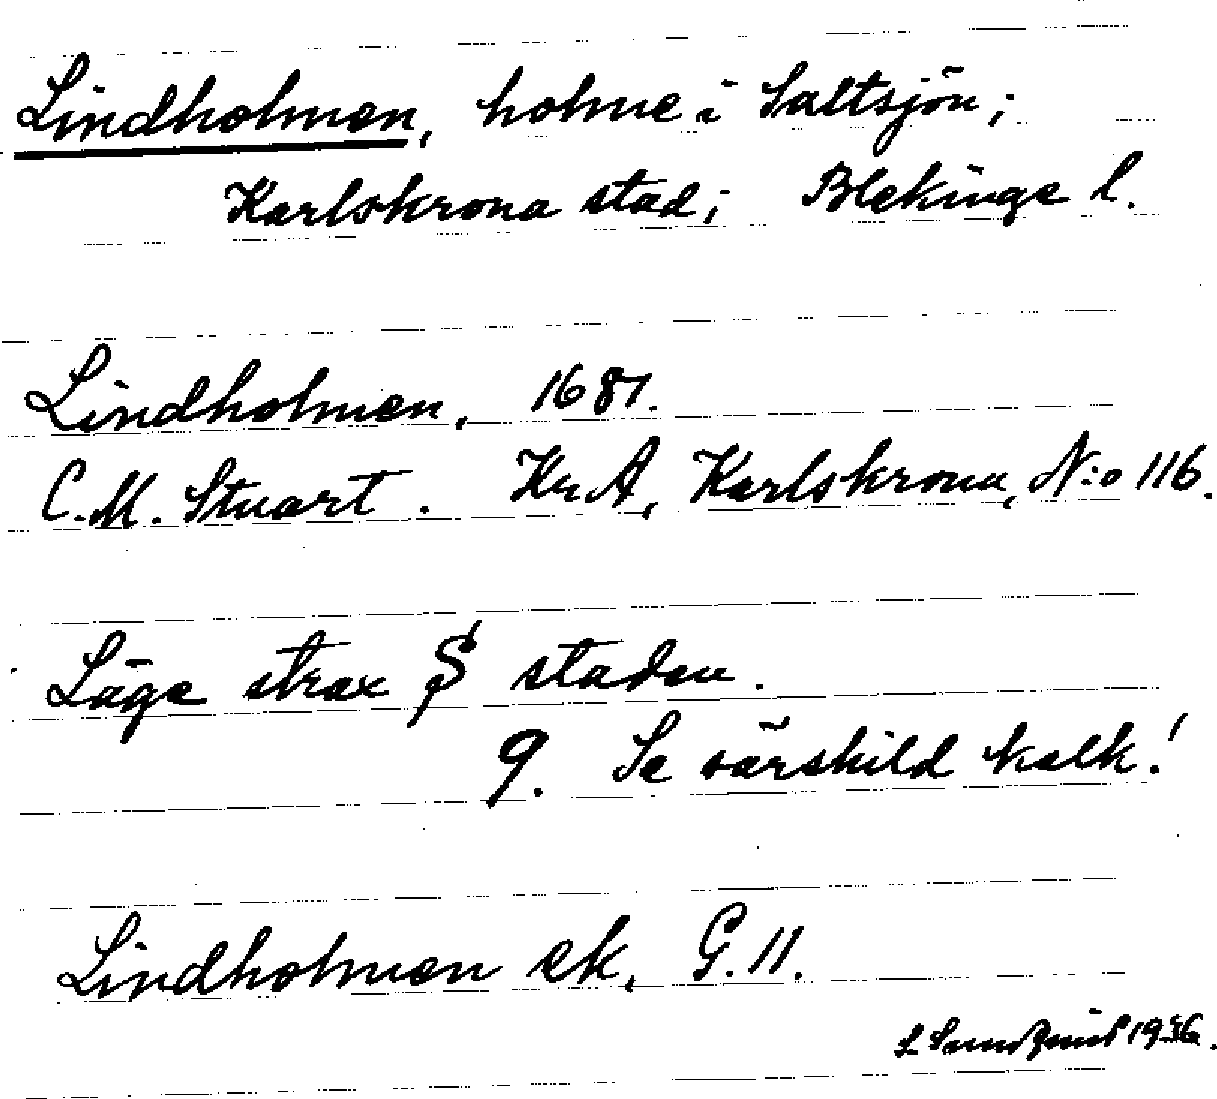 Lindholmen, holme i Saltsjön;
Karlskrona stad; Blekinge l.
Lindholmen, 1687.
C. M. Stuart. Kr A, Karlskrona, N:o 116.
Läge strax S staden.
9. Se särskild kalk!
Lindholmen ek, G. 11.
L Sundqvist 1936.